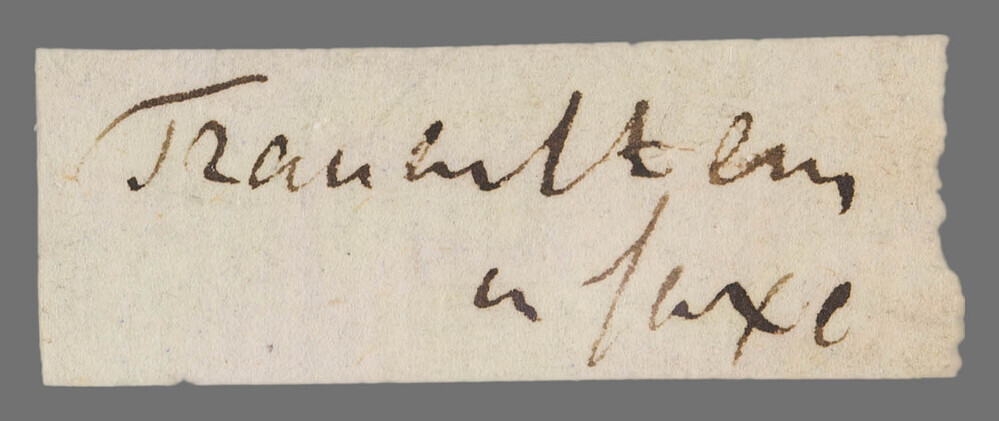 Frauenstein,
en saxe